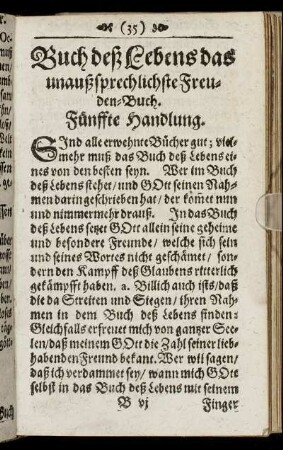 (35)
Buch deß Lebens das
unaußsprechlichste Freu-
den-Buch.
Fünffte Handlung.
SInd alle erwehnte Bücher gut; viel-
mehr muß das Buch deß Lebens ei-
nes von den besten seyn. Wer im Buch
deß Lebens stehet/ und GOtt seinen Nah-
men darin geschrieben hat/ der kom̃et nun
und nimmermehr drauß. In das Buch
deß Lebens setzet GOtt allein seine geheime
und besondere Freunde/ welche sich sein
und seines Wortes nicht geschämet/ son-
dern den Kampff deß Glaubens ritterlich
gekämpfft haben. a. Billich auch ists/ daß
die da Streiten und Siegen/ ihren Nah-
men in dem Buch deß Lebens finden:
Gleichfalls erfreuet mich von gantzer See-
len/ daß meinem GOtt die Zahl seiner lieb-
habenden Freund bekant. Wer wil sagen/
daß ich verdammet sey/ wann mich GOtt
selbst in das Buch deß Lebens mit seinem
B vj Finger